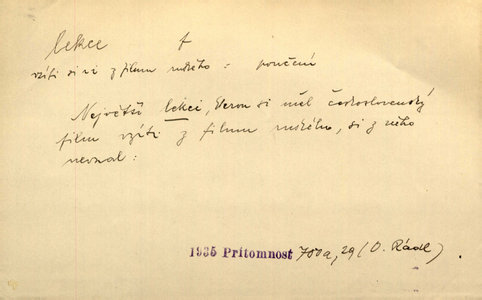 lekce f
vzíti si z filmu ruského : poučení
Největší lekci, kterou si měl československý
film vzíti z filmu ruského, si z něho
nevzal :
1935 Prítomnost 700a, 29 (O. Rádl)